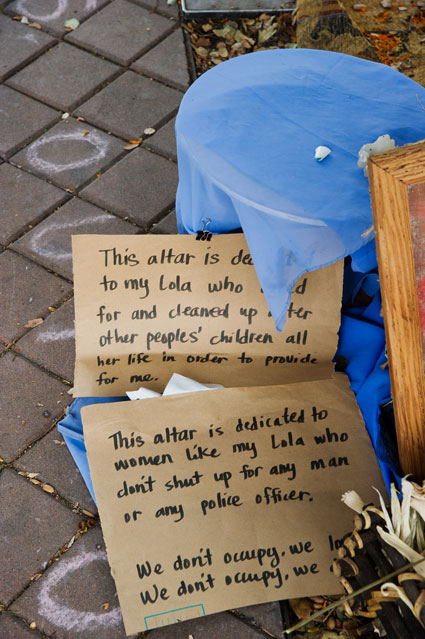 This altar is
to my Lola who
for and cleaned up
other peoples' children all
her life in order to provide
for me.
This altar is dedicated to
women like my Lola who
don't shut up for any man
or any police officer.
We don't occupy, we
We don't occupy, we